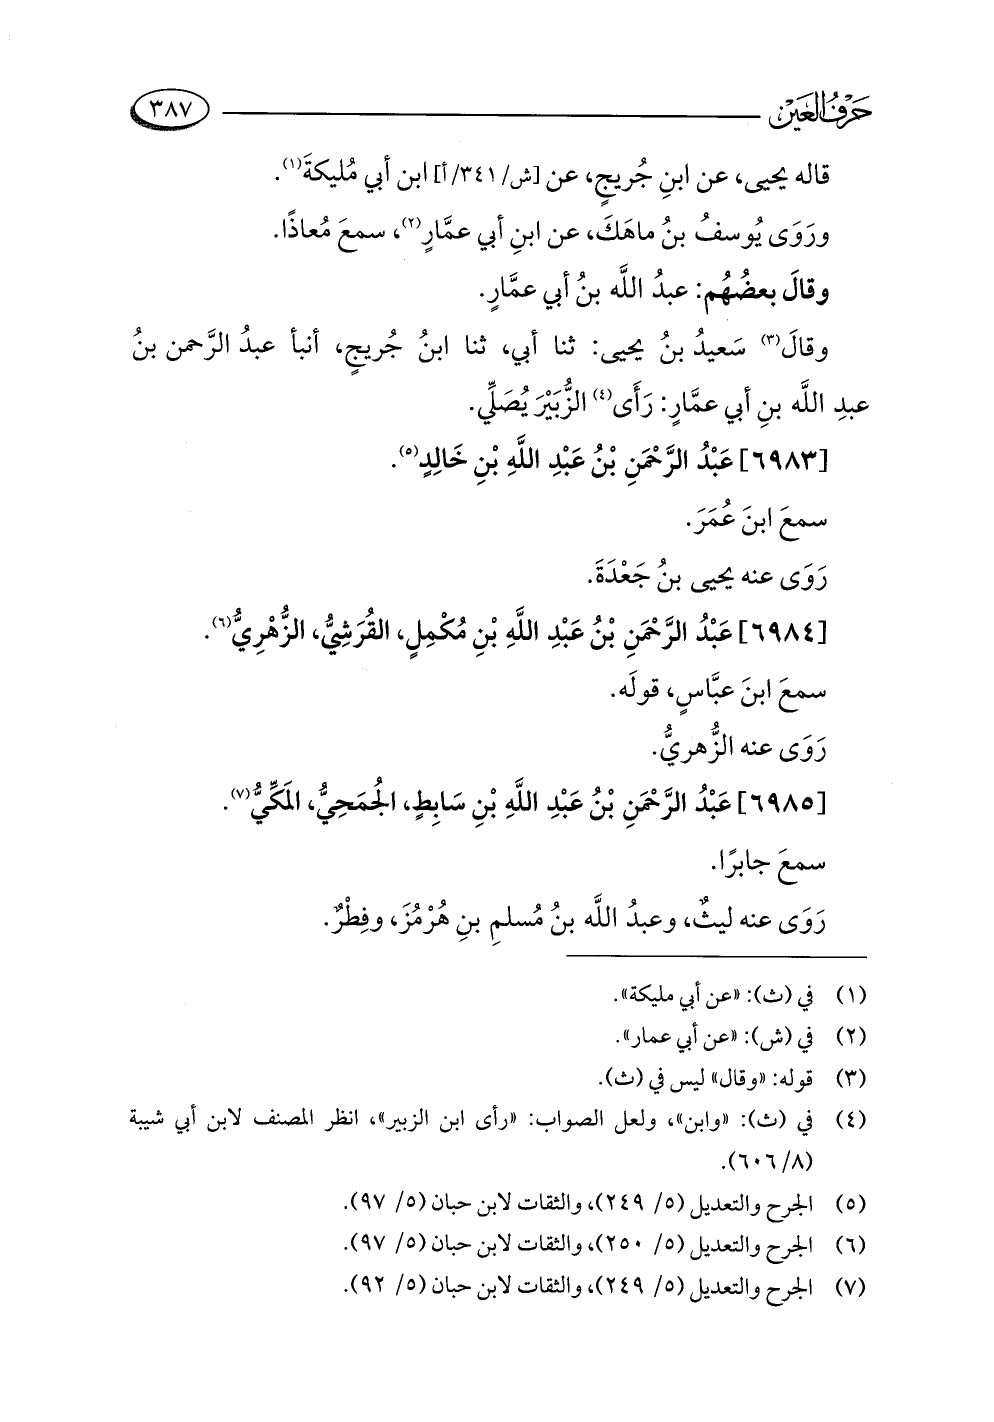 حَرْفُ العَيْن
٣٨٧
قاله يحيى، عن ابنِ جُريجٍ، عن [ش/ ٣٤١/ أ] ابن أبي مُليكةَ(١).
ورَوَى يُوسفُ بنُ ماهَكَ، عن ابنِ أبي عمَّارٍ(٢)، سمعَ مُعاذًا.
وقالَ بعضُهُم: عبدُ اللَّه بنُ أبي عمَّارٍ.
وقالَ(٣) سَعيدُ بنُ يحيى: ثنا أبي، ثنا ابنُ جُريجٍ، أنبأ عبدُ الرَّحمن بنُ
عبدِ اللَّه بنِ أبي عمَّارٍ: رَأَى(٤) الزُّبَيْرَ يُصَلِّي.
[٦٩٨٣] عَبْدُ الرَّحْمَنِ بْنُ عَبْدِ اللَّهِ بْنِ خَالِدٍ(٥).
سمعَ ابنَ عُمَرَ.
رَوَى عنه يحيى بنُ جَعْدَةَ.
[٦٩٨٤] عَبْدُ الرَّحْمَنِ بْنُ عَبْدِ اللَّهِ بْنِ مُكْمِلٍ، القُرَشِيُّ، الزُّهْرِيُّ(٦).
سمعَ ابنَ عبَّاسٍ، قولَه.
رَوَى عنه الزُّهريُّ.
[٦٩٨٥] عَبْدُ الرَّحْمَنِ بْنُ عَبْدِ اللَّهِ بْنِ سَابِطٍ، الجُمَحِيُّ، المَكِّيُّ(٧).
سمعَ جابرًا.
رَوَى عنه ليثٌ، وعبدُ اللَّه بنُ مُسلمِ بنِ هُرْمُزَ، وفِطْرٌ.
(١) في (ث): «عن أبي مليكة».
(٢) في (ش): «عن أبي عمار».
(٣) قوله: «وقال» ليس في (ث).
(٤) في (ث): «وابن»، ولعل الصواب: «رأى ابن الزبير»، انظر المصنف لابن أبي شيبة
(٨/ ٦٠٦).
(٥) الجرح والتعديل (٥/ ٢٤٩)، والثقات لابن حبان (٥/ ٩٧).
(٦) الجرح والتعديل (٥/ ٢٥٠)، والثقات لابن حبان (٥/ ٩٧).
(٧) الجرح والتعديل (٥/ ٢٤٩)، والثقات لابن حبان (٥/ ٩٢).